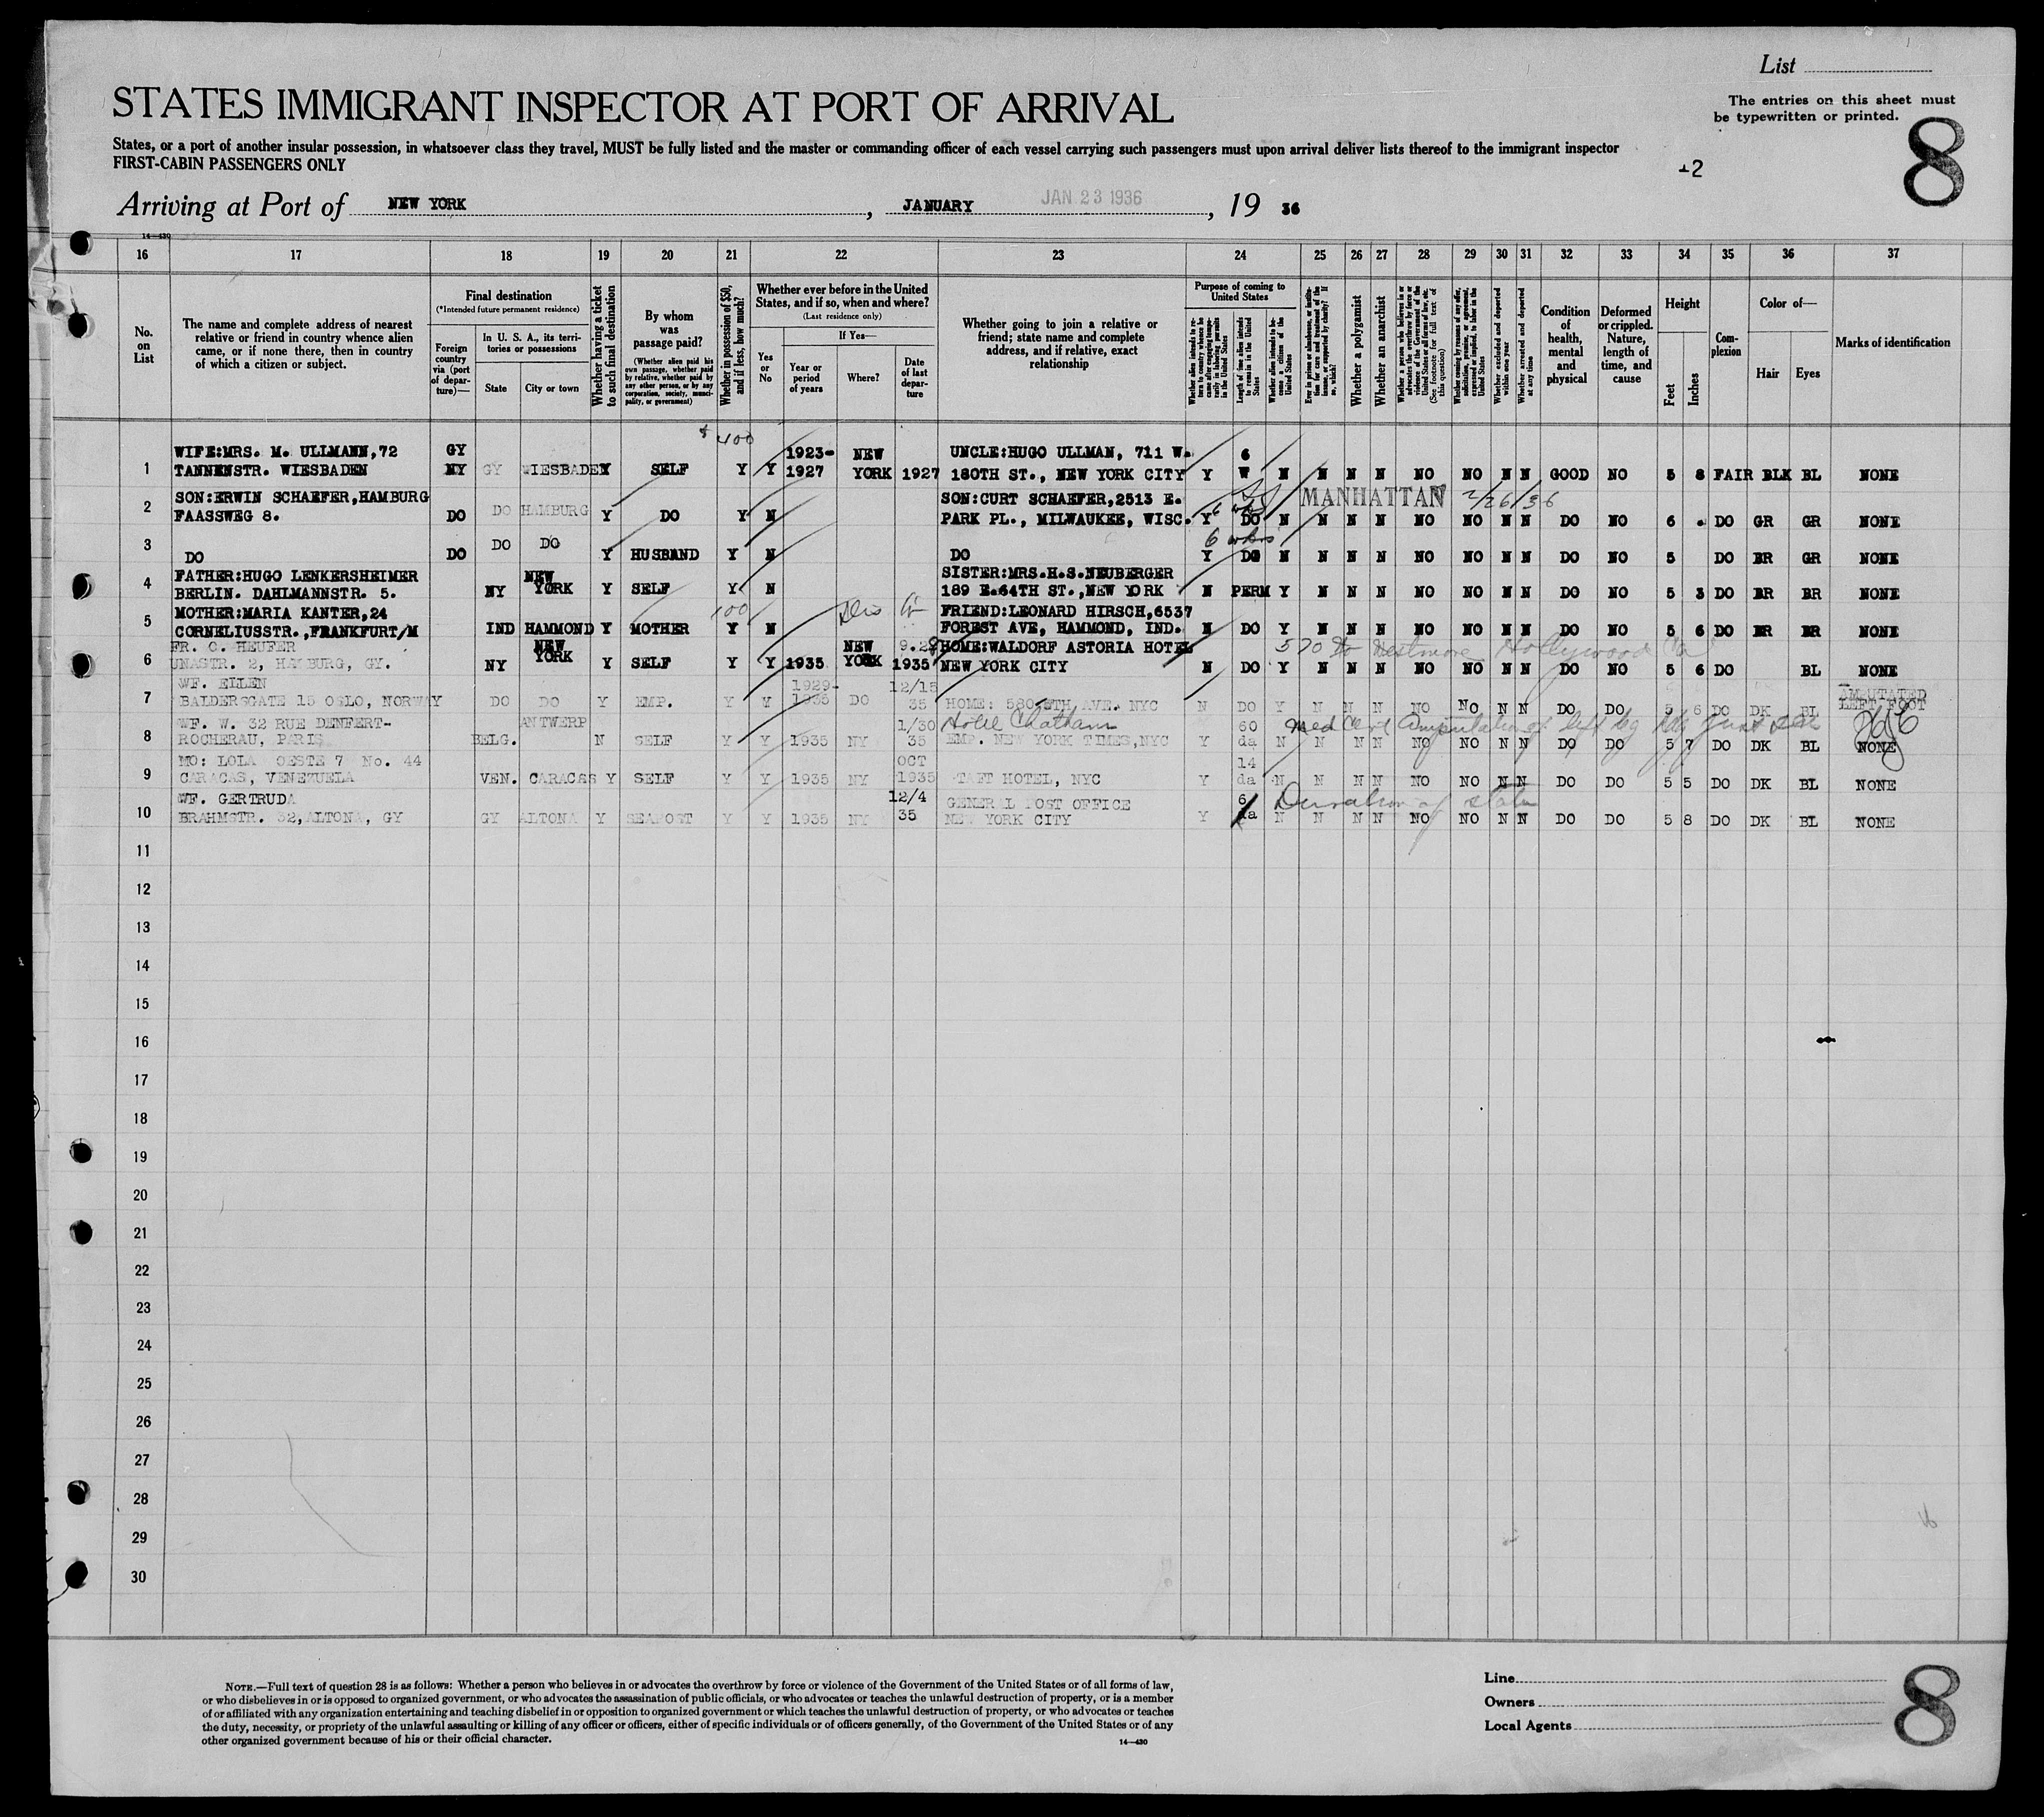 List
STATES IMMIGRANT INSPECTOR AT PORT OF ARRIVAL
The entries on this sheet must
be typewritten or printed.
8
States, or a port of another insular possession, in whatsoever class they travel, MUST be fully listed and the master or commanding officer of each vessel carrying such passengers must upon arrival deliver lists thereof to the immigrant inspector
FIRST-CABIN PASSENGERS ONLY
Arriving at Port of NEW YORK, JANUARY JAN 23 1936, 19 36
14-430
16 17 18 19 20 21 22 23 24 25 26 27 28 29 30 31 32 33 34 35 36 37
No. on List
The name and complete address of nearest relative or friend in country whence alien came, or if none there, then in country of which a citizen or subject.
Final destination
(*Intended future permanent residence)
Foreign country via (port of departure)—
In U. S. A., its territories or possessions
State
City or town
Whether having a ticket to such final destination
By whom was passage paid?
(Whether alien paid his own passage, whether paid by relative, whether paid by any other person, or by any corporation, society, municipality, or government)
Whether in possession of $50, and if less, how much?
Whether ever before in the United States, and if so, when and where?
(Last residence only)
Yes or No
If Yes—
Year or period of years
Where?
Date of last departure
Whether going to join a relative or friend; state name and complete address, and if relative, exact relationship
Purpose of coming to United States
Length of time alien intends to remain in the United States
Whether alien intends to become a citizen of the United States
Whether a polygamist
Whether an anarchist
Whether excluded and deported within one year
Whether arrested and deported at any time
Condition of health, mental and physical
Deformed or crippled. Nature, length of time, and cause
Height
Feet
Inches
Complexion
Color of—
Hair
Eyes
Marks of identification
$ 400
WIFE:MRS. M. ULLMANN,72 GY 1923- NEW UNCLE:HUGO ULLMAN, 711 W. 6
1 TANNENSTR. WIESBADEN NY GY WIESBADEN Y SELF Y Y 1927 YORK 1927 180TH ST., NEW YORK CITY Y W N N N N NO NO N N GOOD NO 5 8 FAIR BLK BL NONE
SON:ERWIN SCHAEFER,HAMBURG SON:CURT SCHAEFER,2513 E. MANHATTAN 2/26/36
2 FAASSWEG 8. DO DO HAMBURG Y DO Y N PARK PL., MILWAUKEE, WISC. Y DO N N N N NO NO N N DO NO 6 DO GR GR NONE
6 wks
3 DO DO DO DO Y HUSBAND Y N DO Y DO N N N N NO NO N N DO NO 5 DO BR GR NONE
FATHER:HUGO LENKERSHEIMER NEW SISTER:MRS.H.S.NEUBERGER
4 BERLIN. DAHLMANNSTR. 5. NY YORK Y SELF Y N 189 E.64TH ST.,NEW YORK N PERM Y N N N NO NO N N DO NO 5 3 DO BR BR NONE
MOTHER:MARIA KANTER,24 100 FRIEND:LEONARD HIRSCH,6537
5 CORNELIUSSTR.,FRANKFURT/M IND HAMMOND Y MOTHER Y N FOREST AVE, HAMMOND, IND. N DO Y N N N NO NO N N DO NO 5 6 DO BR BR NONE
FR. C. HEUFER NEW NEW 9.28 HOME:WALDORF ASTORIA HOTEL 570 Westmore Hollywood Ca
6 UNASTR. 2, HAMBURG, GY. NY YORK Y SELF Y Y 1935 YORK 1935 NEW YORK CITY N DO Y N N N NO NO N N DO NO 5 6 DO BL NONE
WF. ELLEN 1929- 12/15 AMPUTATED
7 BALDERSGATE 15 OSLO, NORWAY DO DO Y EMP. Y Y 1935 DO 35 HOME: 580 5TH AVE. NYC N DO Y N N N NO NO N N DO DO 5 6 DO DK BL LEFT FOOT
WF. W. 32 RUE DENFERT- ANTWERP 1/30 Hotel Chatham 60 Med Cert Amputation of left leg
8 ROCHERAU, PARIS BELG. N SELF Y Y 1935 NY 35 EMP. NEW YORK TIMES,NYC Y da N N N N NO NO N N DO DO 5 7 DO DK BL NONE
MO: LOLA OESTE 7 No. 44 OCT 14
9 CARACAS, VENEZUELA VEN. CARACAS Y SELF Y Y 1935 NY 1935 TAFT HOTEL, NYC Y da N N N N NO NO N N DO DO 5 5 DO DK BL NONE
WF. GERTRUDA 12/4 GENERAL POST OFFICE 6 Duration of status
10 BRAHMSTR. 32,ALTONA, GY GY ALTONA Y SEAPOST Y Y 1935 NY 35 NEW YORK CITY Y da N N N N NO NO N N DO DO 5 8 DO DK BL NONE
11
12
13
14
15
16
17
18
19
20
21
22
23
24
25
26
27
28
29
30
NOTE.—Full text of question 28 is as follows: Whether a person who believes in or advocates the overthrow by force or violence of the Government of the United States or of all forms of law,
or who disbelieves in or is opposed to organized government, or who advocates the assassination of public officials, or who advocates or teaches the unlawful destruction of property, or is a member
of or affiliated with any organization entertaining and teaching disbelief in or opposition to organized government or which teaches the unlawful destruction of property, or who advocates or teaches
the duty, necessity, or propriety of the unlawful assaulting or killing of any officer or officers, either of specific individuals or of officers generally, of the Government of the United States or of any
other organized government because of his or their official character.
14-430
Line
Owners
Local Agents
8